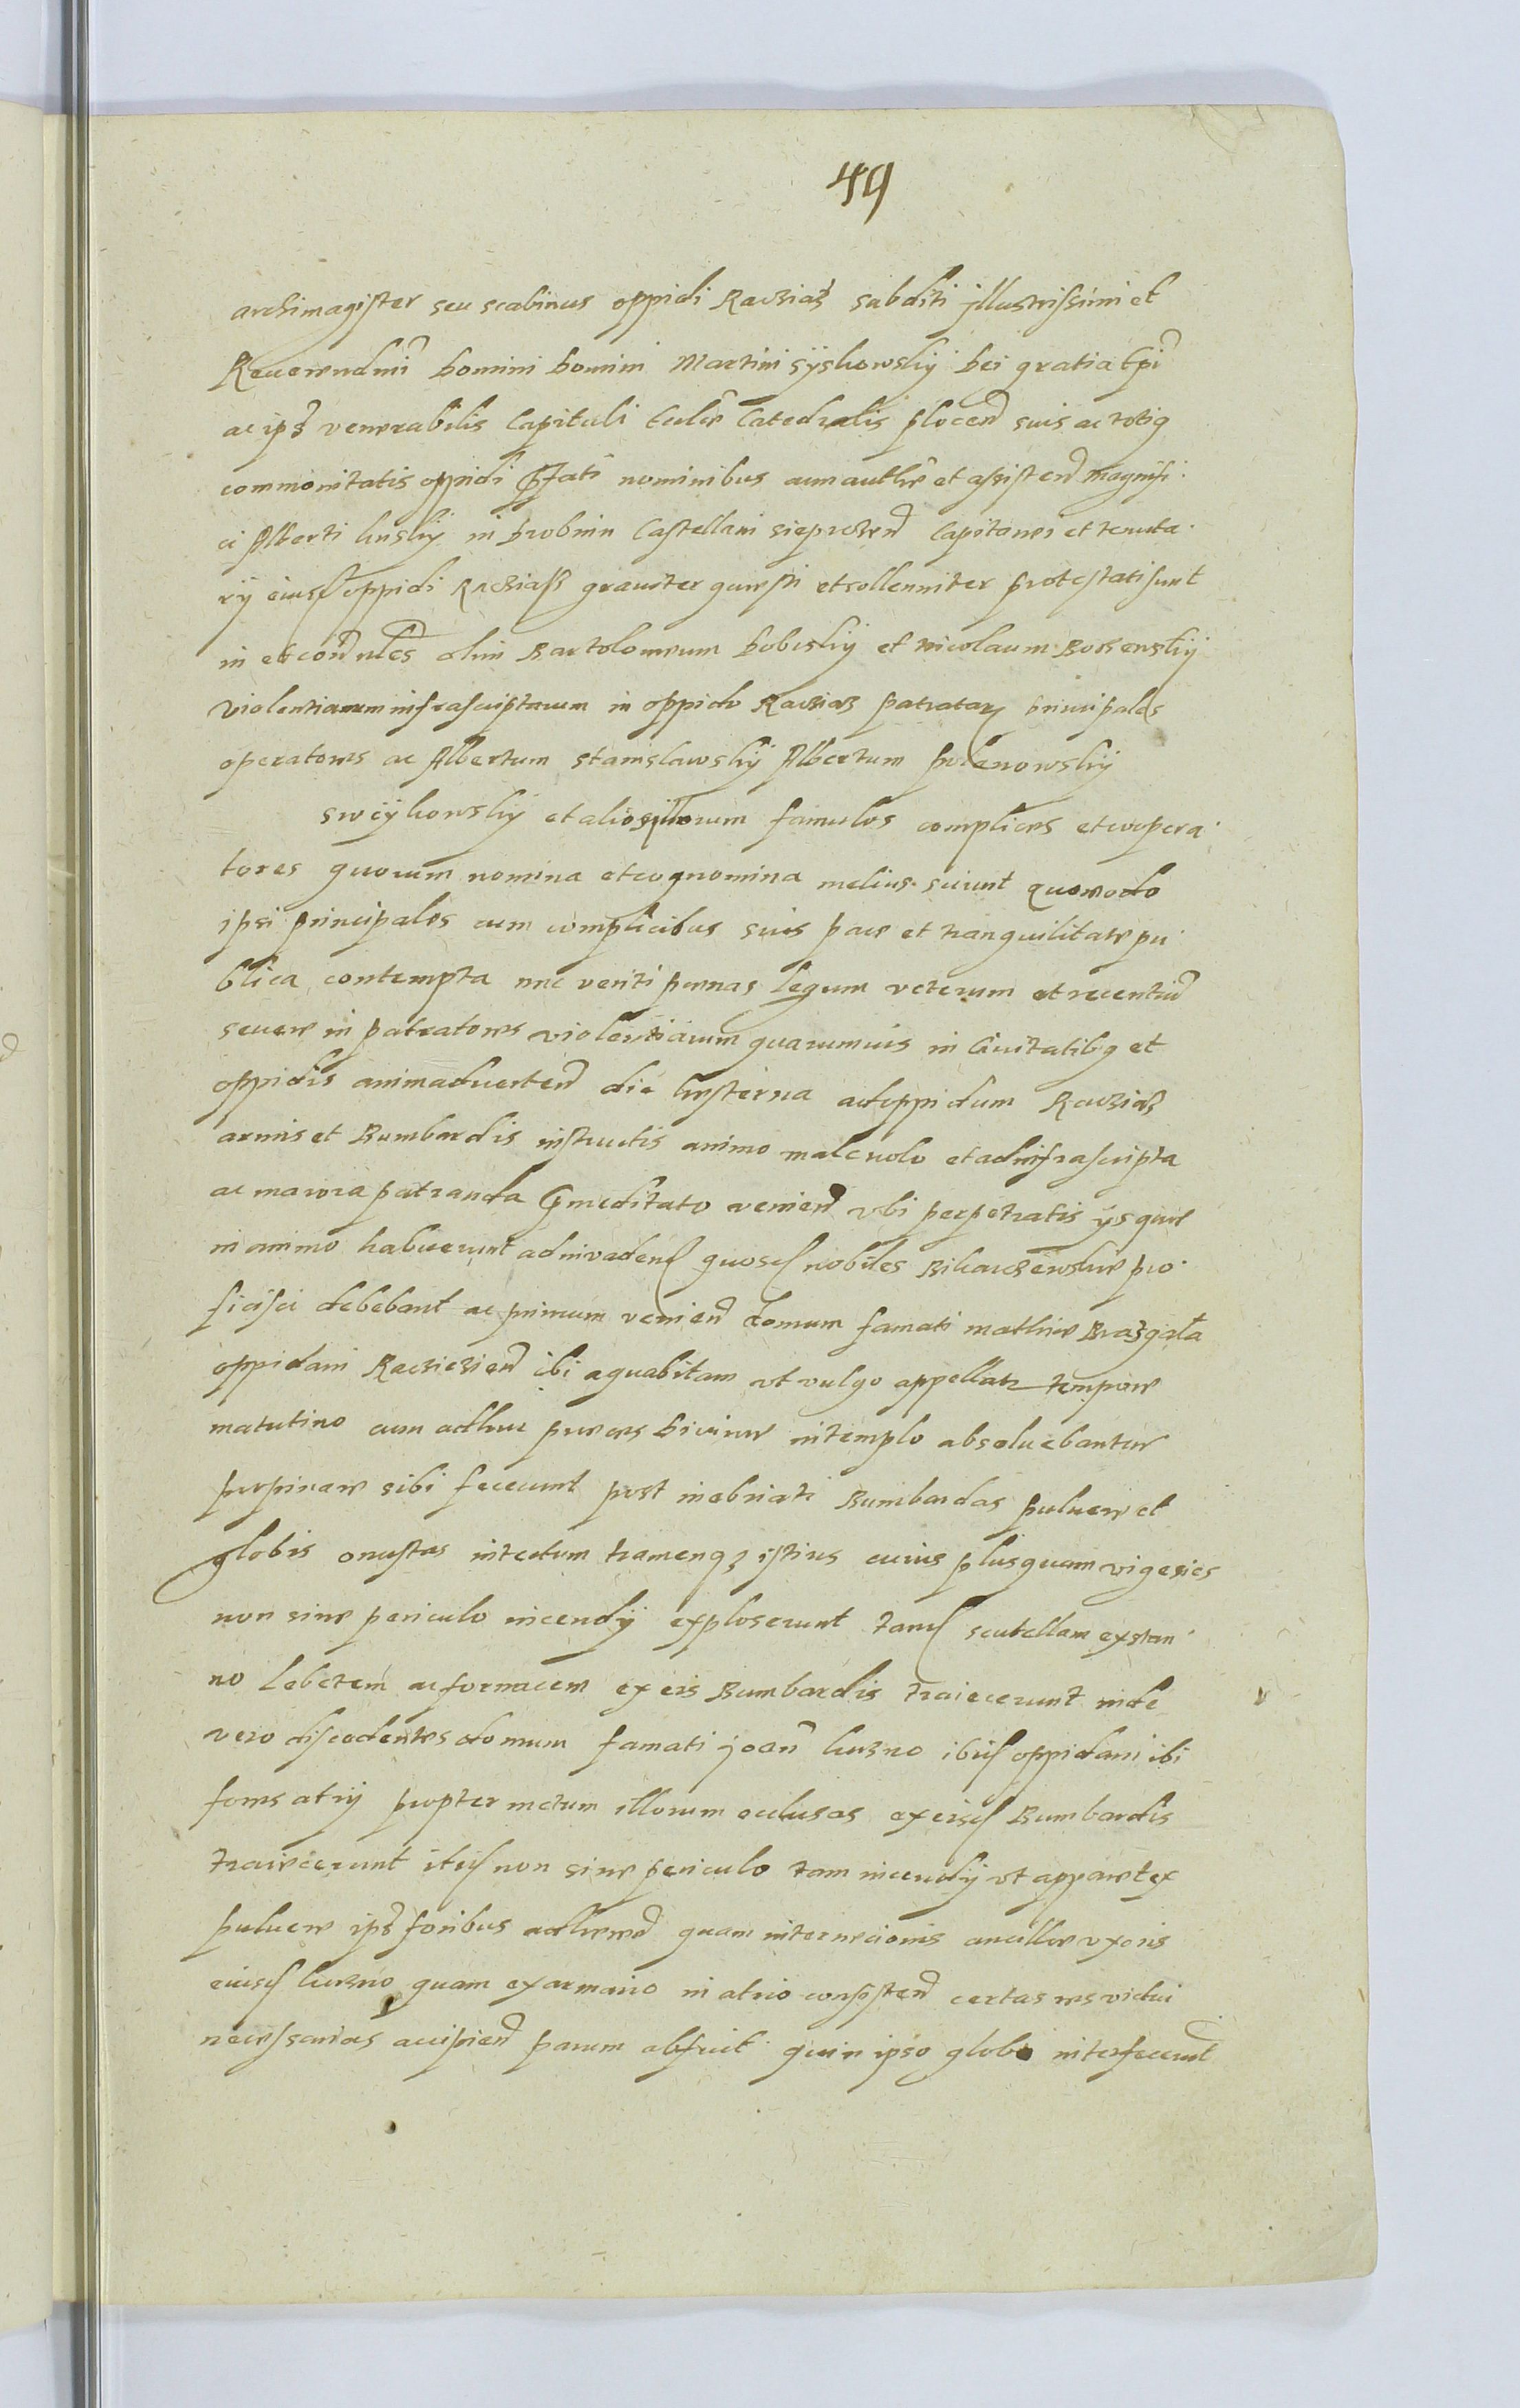 49
archimagister seu scabinus oppidi Racziaz subditi jllustrissimi et
Reuerendmi Domini Domini Martini syskowskij Dei gratia Epi
ac ipz venerabilis Capituli Eccliæ Catedralis plocen suis ac totiq
commonitatis oppidi pfati nominibus cum authe et assisten Magnifi
ci Alberti in Drobnin Castellani sieprcen Capitanei et tenuta
rij eiusd oppidi Racziasz grauiter quæsti et sollenniter protestati sunt
in et con nles olim Bartolomeum Dobskij et Nicolaum Bossenskij
violentiarum infrascriptarum in oppido Racziaz patratar principales
operatores ac Albertum stanislawskij Albertum
swcijkowskij et alios illorum famulos complices et coopera
tores quorum nomina et cognomina melius sciunt quomodo
ipsi principales cum complicibus suis pace et tranquilitate pu
blica contempta nec veriti pænas legum veterum et recentiu
seuere in patratores violentiarum quarumuis in Ciuitatibq et
oppidis animaduerten die hesterna ad oppidum Racziaz
armis et Bumbardis instructis animo maleuolo et ad infrascripta
ac maiora patranda pmeditato venien vbi perpetratis ijs quæ
in animo habuerunt ad inuadend quosd nobiles pro
ficisci debebant ac primum venien domum famati mathiæ Brazgała
oppidani Raczieszen ibi aquabitam vt vulgo appellatr tempore
matutino cum adhuc preces Diuinæ in templo absoluebantur
propinare sibi fecerunt post inebriati Bumbardas puluere et
globis onustas in tectum stramenqz istius cuius plusquam vigesies
non sine periculo incendij exploserunt tand scutellam ex stan
no lebetem ac fornacem ex eis Bumbardis traiecerunt inde
vero discedentes domum famati joan ibid oppidani ibi
fores atrij propter metum illorum occlusas ex eisd Bumbardis
traiecerunt itid non sine periculo tam incendij vt apparet ex
puluere ipz foribus adhæren quam internecionis ancillæ vxoris
eiusd quam ex armario in atrio consisten certas res victui
necessarias accipien parum abfuit quin ipso globo interfecerunt